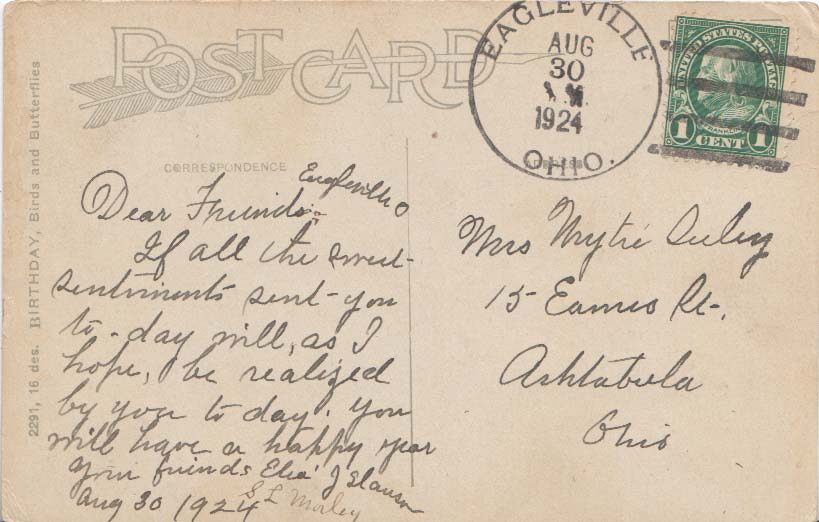 POST CARD
EAGLEVILLE
AUG
30
1924
OHIO.
UNITED STATES POSTAGE
FRANKLIN
1 CENT 1
CORRESPONDENCE
ADDRESS
2291, 16 des. BIRTHDAY, Birds and Butterflies
Eagleville O
Dear Friends:
If all the sweet
sentiments sent you
to-day will, as I
hope, be realized
by you to day. You
will have a happy year
Your friends J Slauson
Aug 30 1924
S L Morley
Mrs Myrtie Seeley
15 Eames St.,
Ashtabula
Ohio